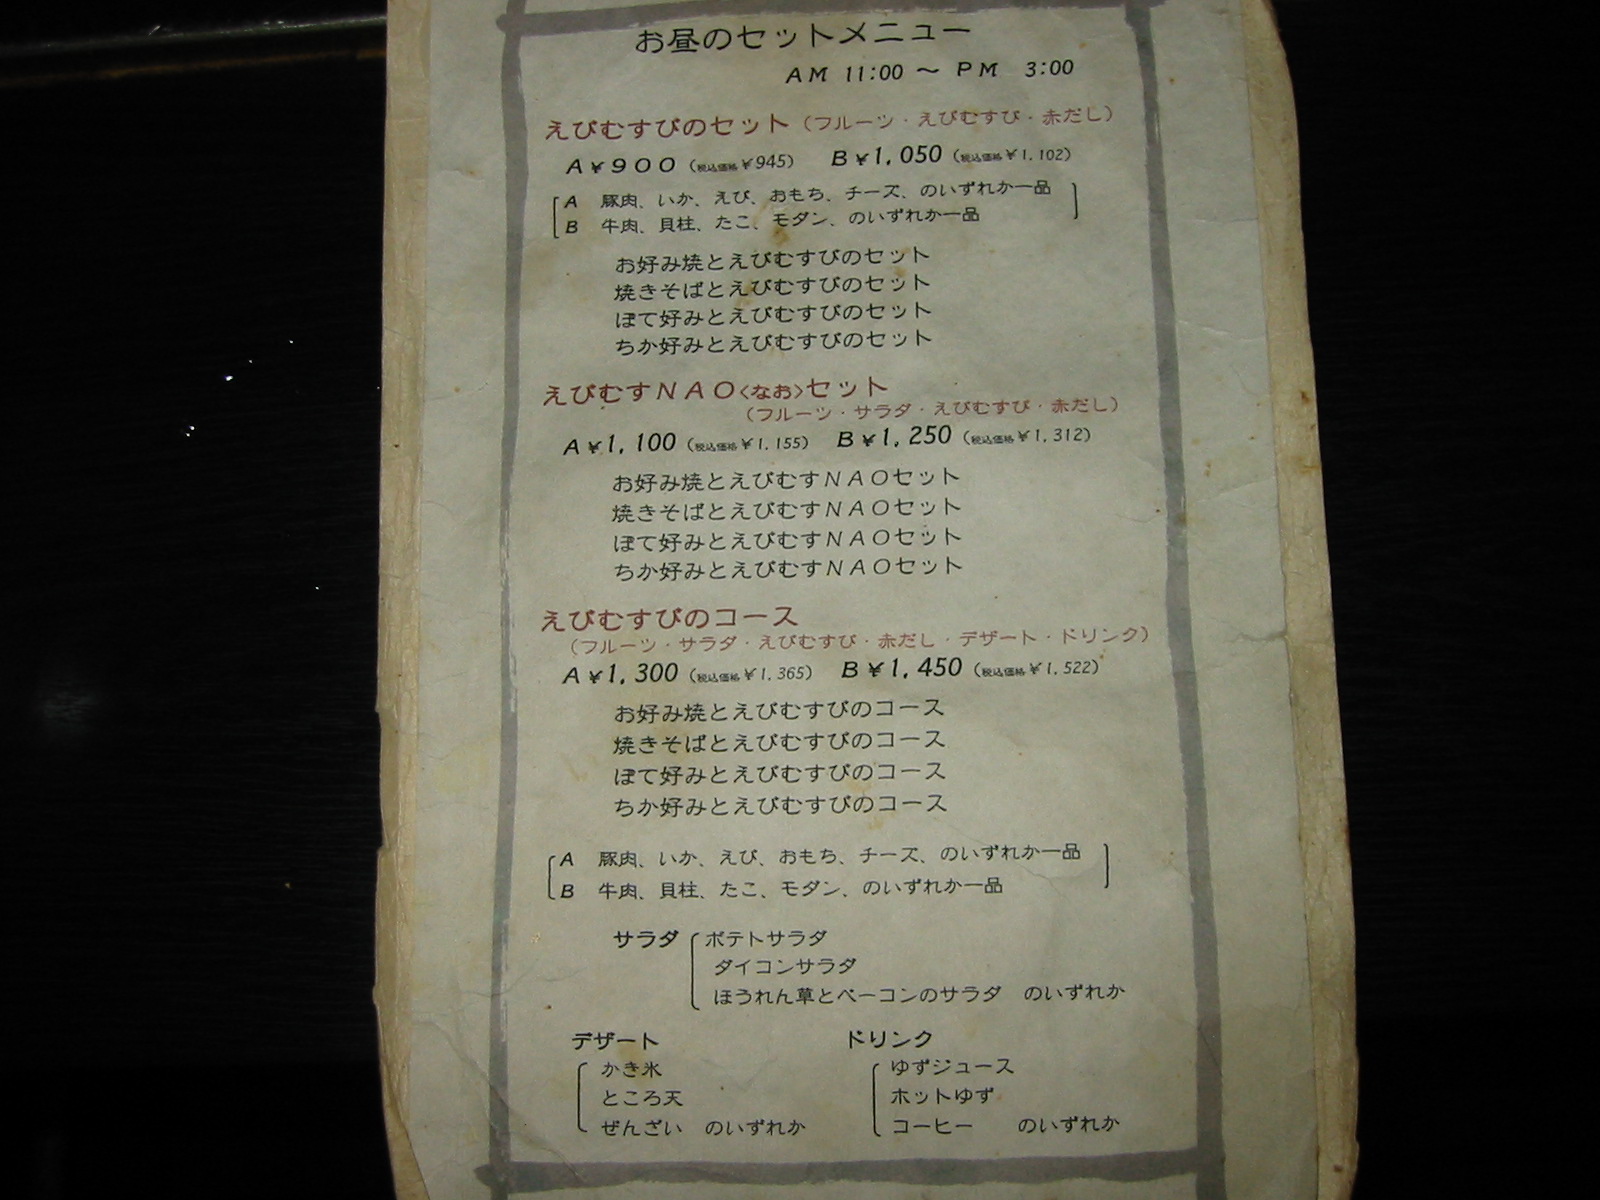 お昼のセットメニュー
AM 11:00 〜 PM 3:00
えびむすびのセット(フルーツ・えびむすび・赤だし)
A¥900(税込価格¥945) B¥1,050(税込価格¥1,102)
A 豚肉、いか、えび、おもち、チーズ、のいずれか一品
B 牛肉、貝柱、たこ、モダン、のいずれか一品
お好み焼とえびむすびのセット
焼きそばとえびむすびのセット
ぽて好みとえびむすびのセット
ちか好みとえびむすびのセット
えびむすNAO〈なお〉セット
(フルーツ・サラダ・えびむすび・赤だし)
A¥1,100(税込価格¥1,155) B¥1,250(税込価格¥1,312)
お好み焼とえびむすNAOセット
焼きそばとえびむすNAOセット
ぽて好みとえびむすNAOセット
ちか好みとえびむすNAOセット
えびむすびのコース
(フルーツ・サラダ・えびむすび・赤だし・デザート・ドリンク)
A¥1,300(税込価格¥1,365) B¥1,450(税込価格¥1,522)
お好み焼とえびむすびのコース
焼きそばとえびむすびのコース
ぽて好みとえびむすびのコース
ちか好みとえびむすびのコース
A 豚肉、いか、えび、おもち、チーズ、のいずれか一品
B 牛肉、貝柱、たこ、モダン、のいずれか一品
サラダ ポテトサラダ
ダイコンサラダ
ほうれん草とベーコンのサラダ のいずれか
デザート ドリンク
かき氷 ゆずジュース
ところ天 ホットゆず
ぜんざい のいずれか コーヒー のいずれか